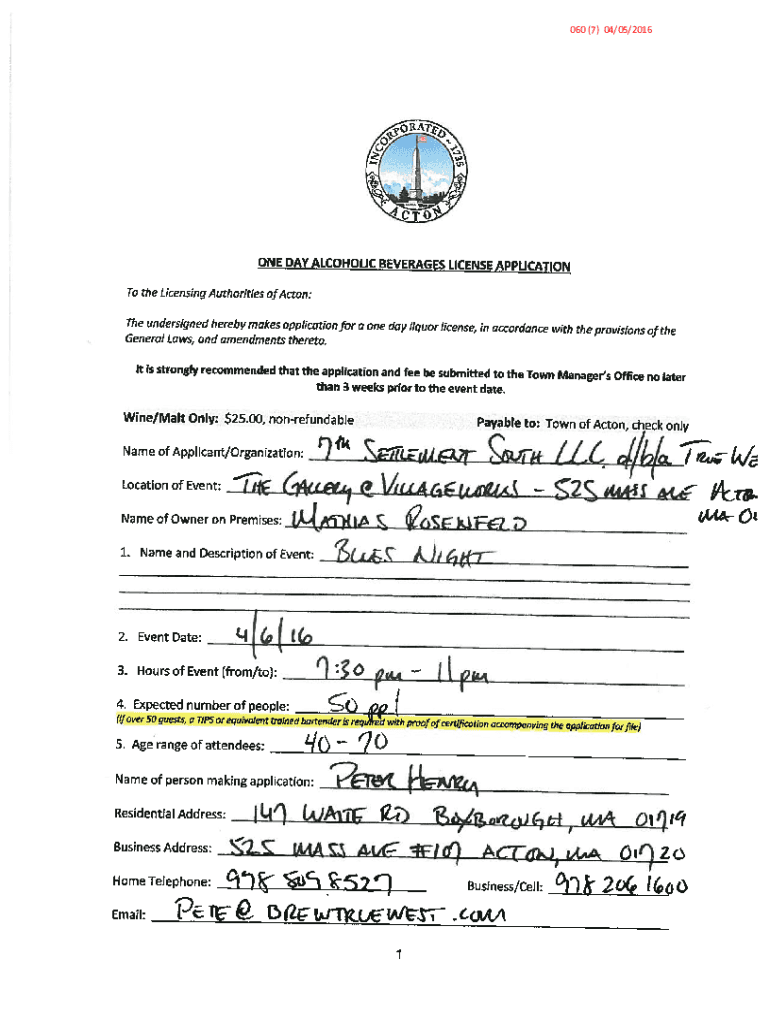 060 (7) 04/05/2016
INCORPORATED - 1735
ACTON
ONE DAY ALCOHOLIC BEVERAGES LICENSE APPLICATION
To the Licensing Authorities of Acton:
The undersigned hereby makes application for a one day liquor license, in accordance with the provisions of the
General Laws, and amendments thereto.
It is strongly recommended that the application and fee be submitted to the Town Manager's Office no later
than 3 weeks prior to the event date.
Wine/Malt Only: $25.00, non-refundable Payable to: Town of Acton, check only
Name of Applicant/Organization: 7th SETTLEMENT SOUTH LLC. d/b/a TRUE WE
Location of Event: THE GALLERY @ VILLAGEWORKS - 525 MASS AVE ACTON
MA 01
Name of Owner on Premises: MATHIAS ROSENFELD
1. Name and Description of Event: BLUES NIGHT
2. Event Date: 4/6/16
3. Hours of Event (from/to): 7:30 pm - 11pm
4. Expected number of people: 50 ppl
(If over 50 guests, a TIPS or equivalent trained bartender is required with proof of certification accompanying the application for file)
5. Age range of attendees: 40-70
Name of person making application: PETER HENRY
Residential Address: 147 WAITE RD BOXBOROUGH, MA 01719
Business Address: 525 MASS AVE #107 ACTON, MA 01720
Home Telephone: 978 8527 Business/Cell: 978 206 1600
Email: PETE@BREWTRUEWEST.COM
1